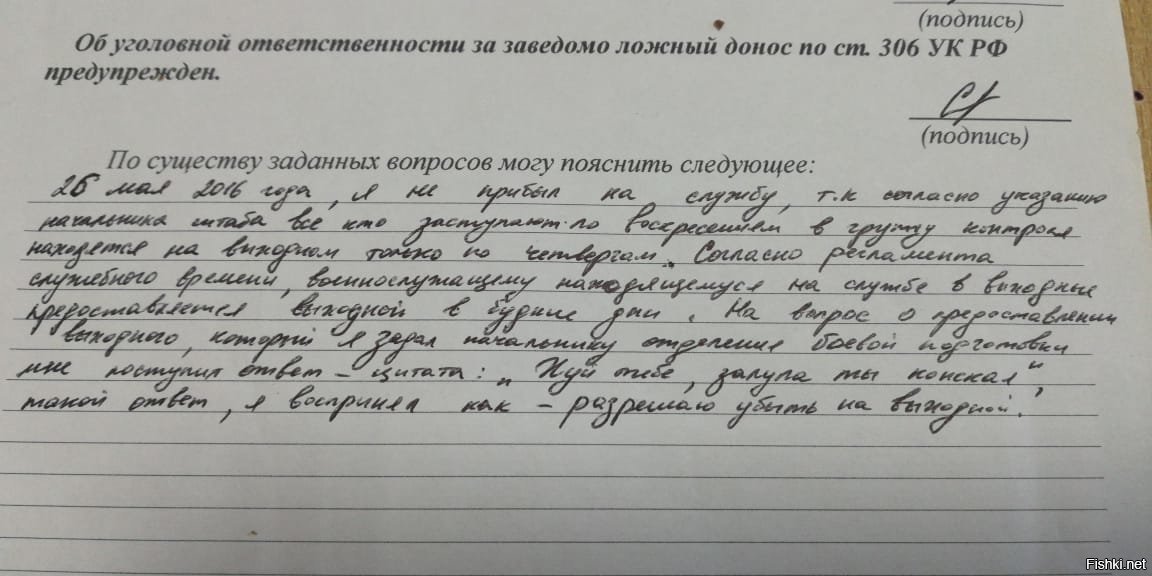 (подпись)
Об уголовной ответственности за заведомо ложный донос по ст. 306 УК РФ
предупрежден.
(подпись)
По существу заданных вопросов могу пояснить следующее:
26 мая 2016 года, я не прибыл на службу, т.к согласно указанию
начальника штаба все кто заступают по воскресеньем в группу контроля
находятся на выходном только по четвергам. Согласно регламента
служебного времени, военнослужащему находящемуся на службе в выходные
предоставляется выходной в будние дни. На вопрос о предоставлении
выходного, который я задал начальнику отделения боевой подготовки
мне поступил ответ - цитата: „Хуй тебе, залупа ты конская",
такой ответ, я воспринял как - разрешаю убыть на выходной.
Fishki.net